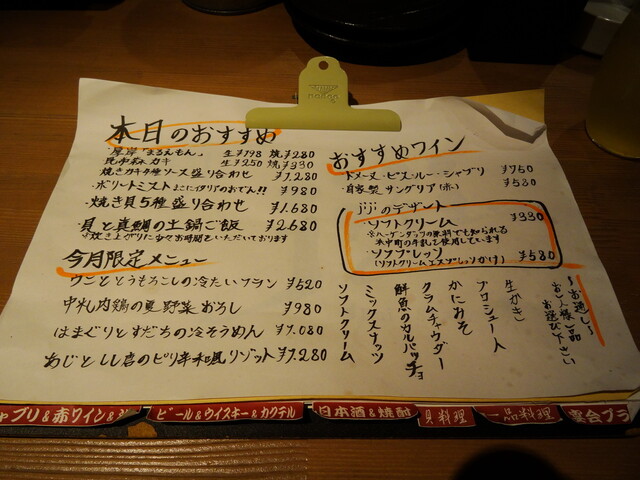 本日のおすすめ
・厚岸「まるえもん」 生¥298 焼¥280
昆布森カキ 生¥250 焼¥330
・焼きガキ4種ソース盛り合わせ ¥1,280
・ボリートミスト まこにイタリアのおでん!! ¥980
・焼き貝5種盛り合わせ ¥1,680
・貝と真鯛の土鍋ご飯 ¥2,680
※炊き上がりに少々お時間をいただいております
今月限定メニュー
ウニととうもろこしの冷たいフラン ¥520
中札内鶏の夏野菜おろし ¥980
はまぐりとすだちの冷そうめん ¥1,080
あじとしし唐のピリ辛和風リゾット ¥1,280
おすすめワイン
・ドメーヌ・ビヨ・ルー・シャブリ ¥750
・自家製サングリア(赤) ¥580
jijiのデザート
ソフトクリーム ¥330
※ハーゲンダッツの原料でも知られる
浜中町の牛乳を使用しています
・ソフプレッソ ¥580
(ソフトクリームエスプレッソかけ)
〜お通し〜
お一人様一品
お選び下さい
生がき
ブロシュー人
かにみそ
クラムチャウダー
鮮魚のカルパッチョ
ミックスナッツ
ソフトクリーム
ャブリ&赤ワイン&シ
ビール&ウイスキー&カクテル
日本酒&焼酎
貝料理
一品料理
宴合プラ